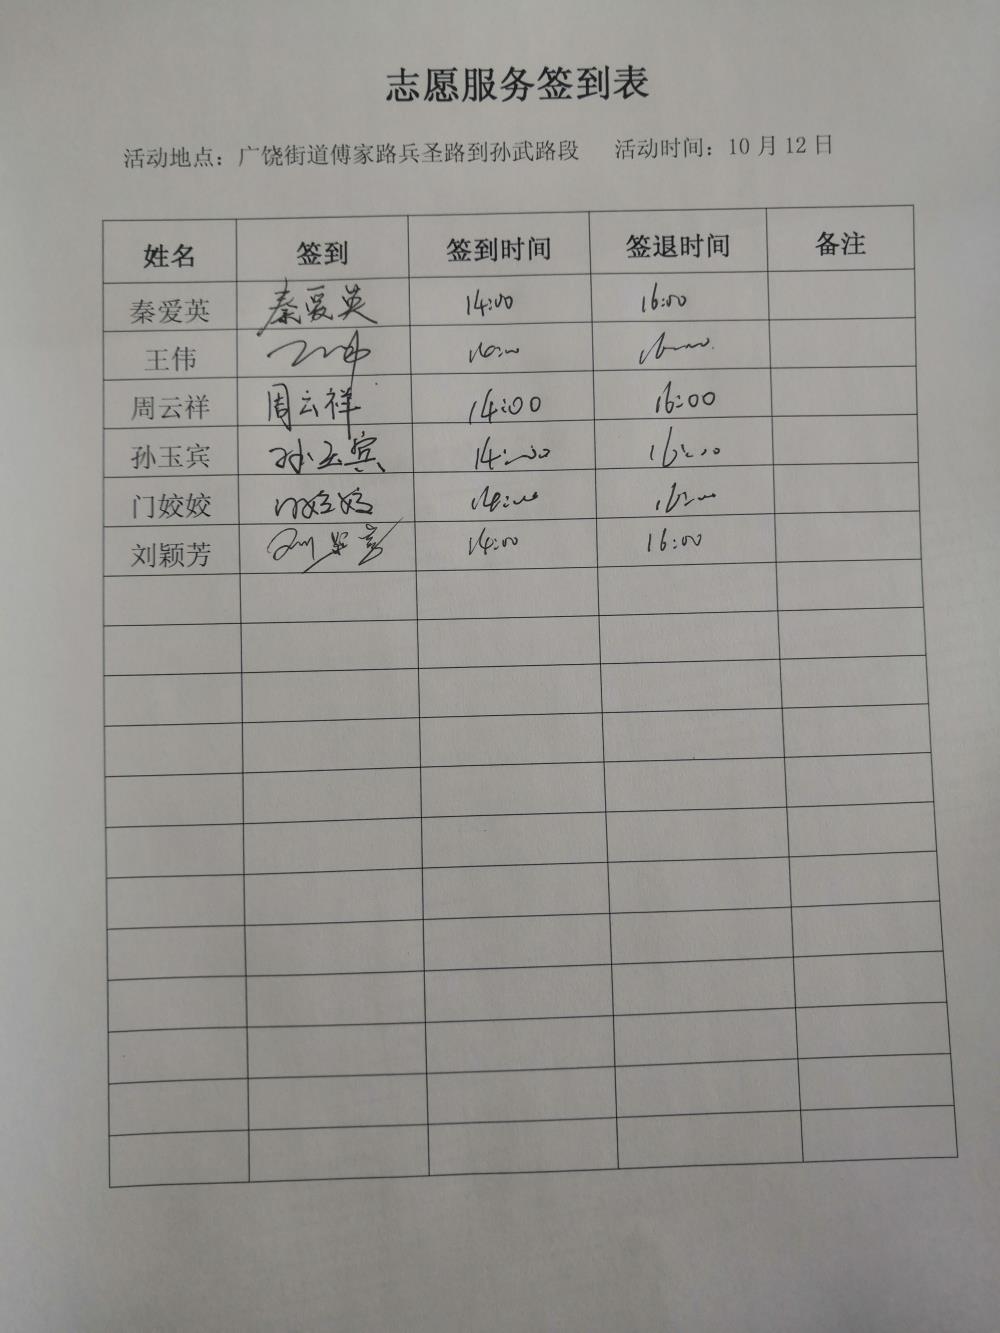 志愿服务签到表
活动地点：广饶街道傅家路兵圣路到孙武路段 活动时间：10月12日
姓名 签到 签到时间 签退时间 备注
秦爱英 秦爱英 14:00 16:00
王伟 王伟 14:00 16:00
周云祥 周云祥 14:00 16:00
孙玉宾 孙玉宾 14:00 16:00
门姣姣 门姣姣 14:00 16:00
刘颖芳 14:00 16:00